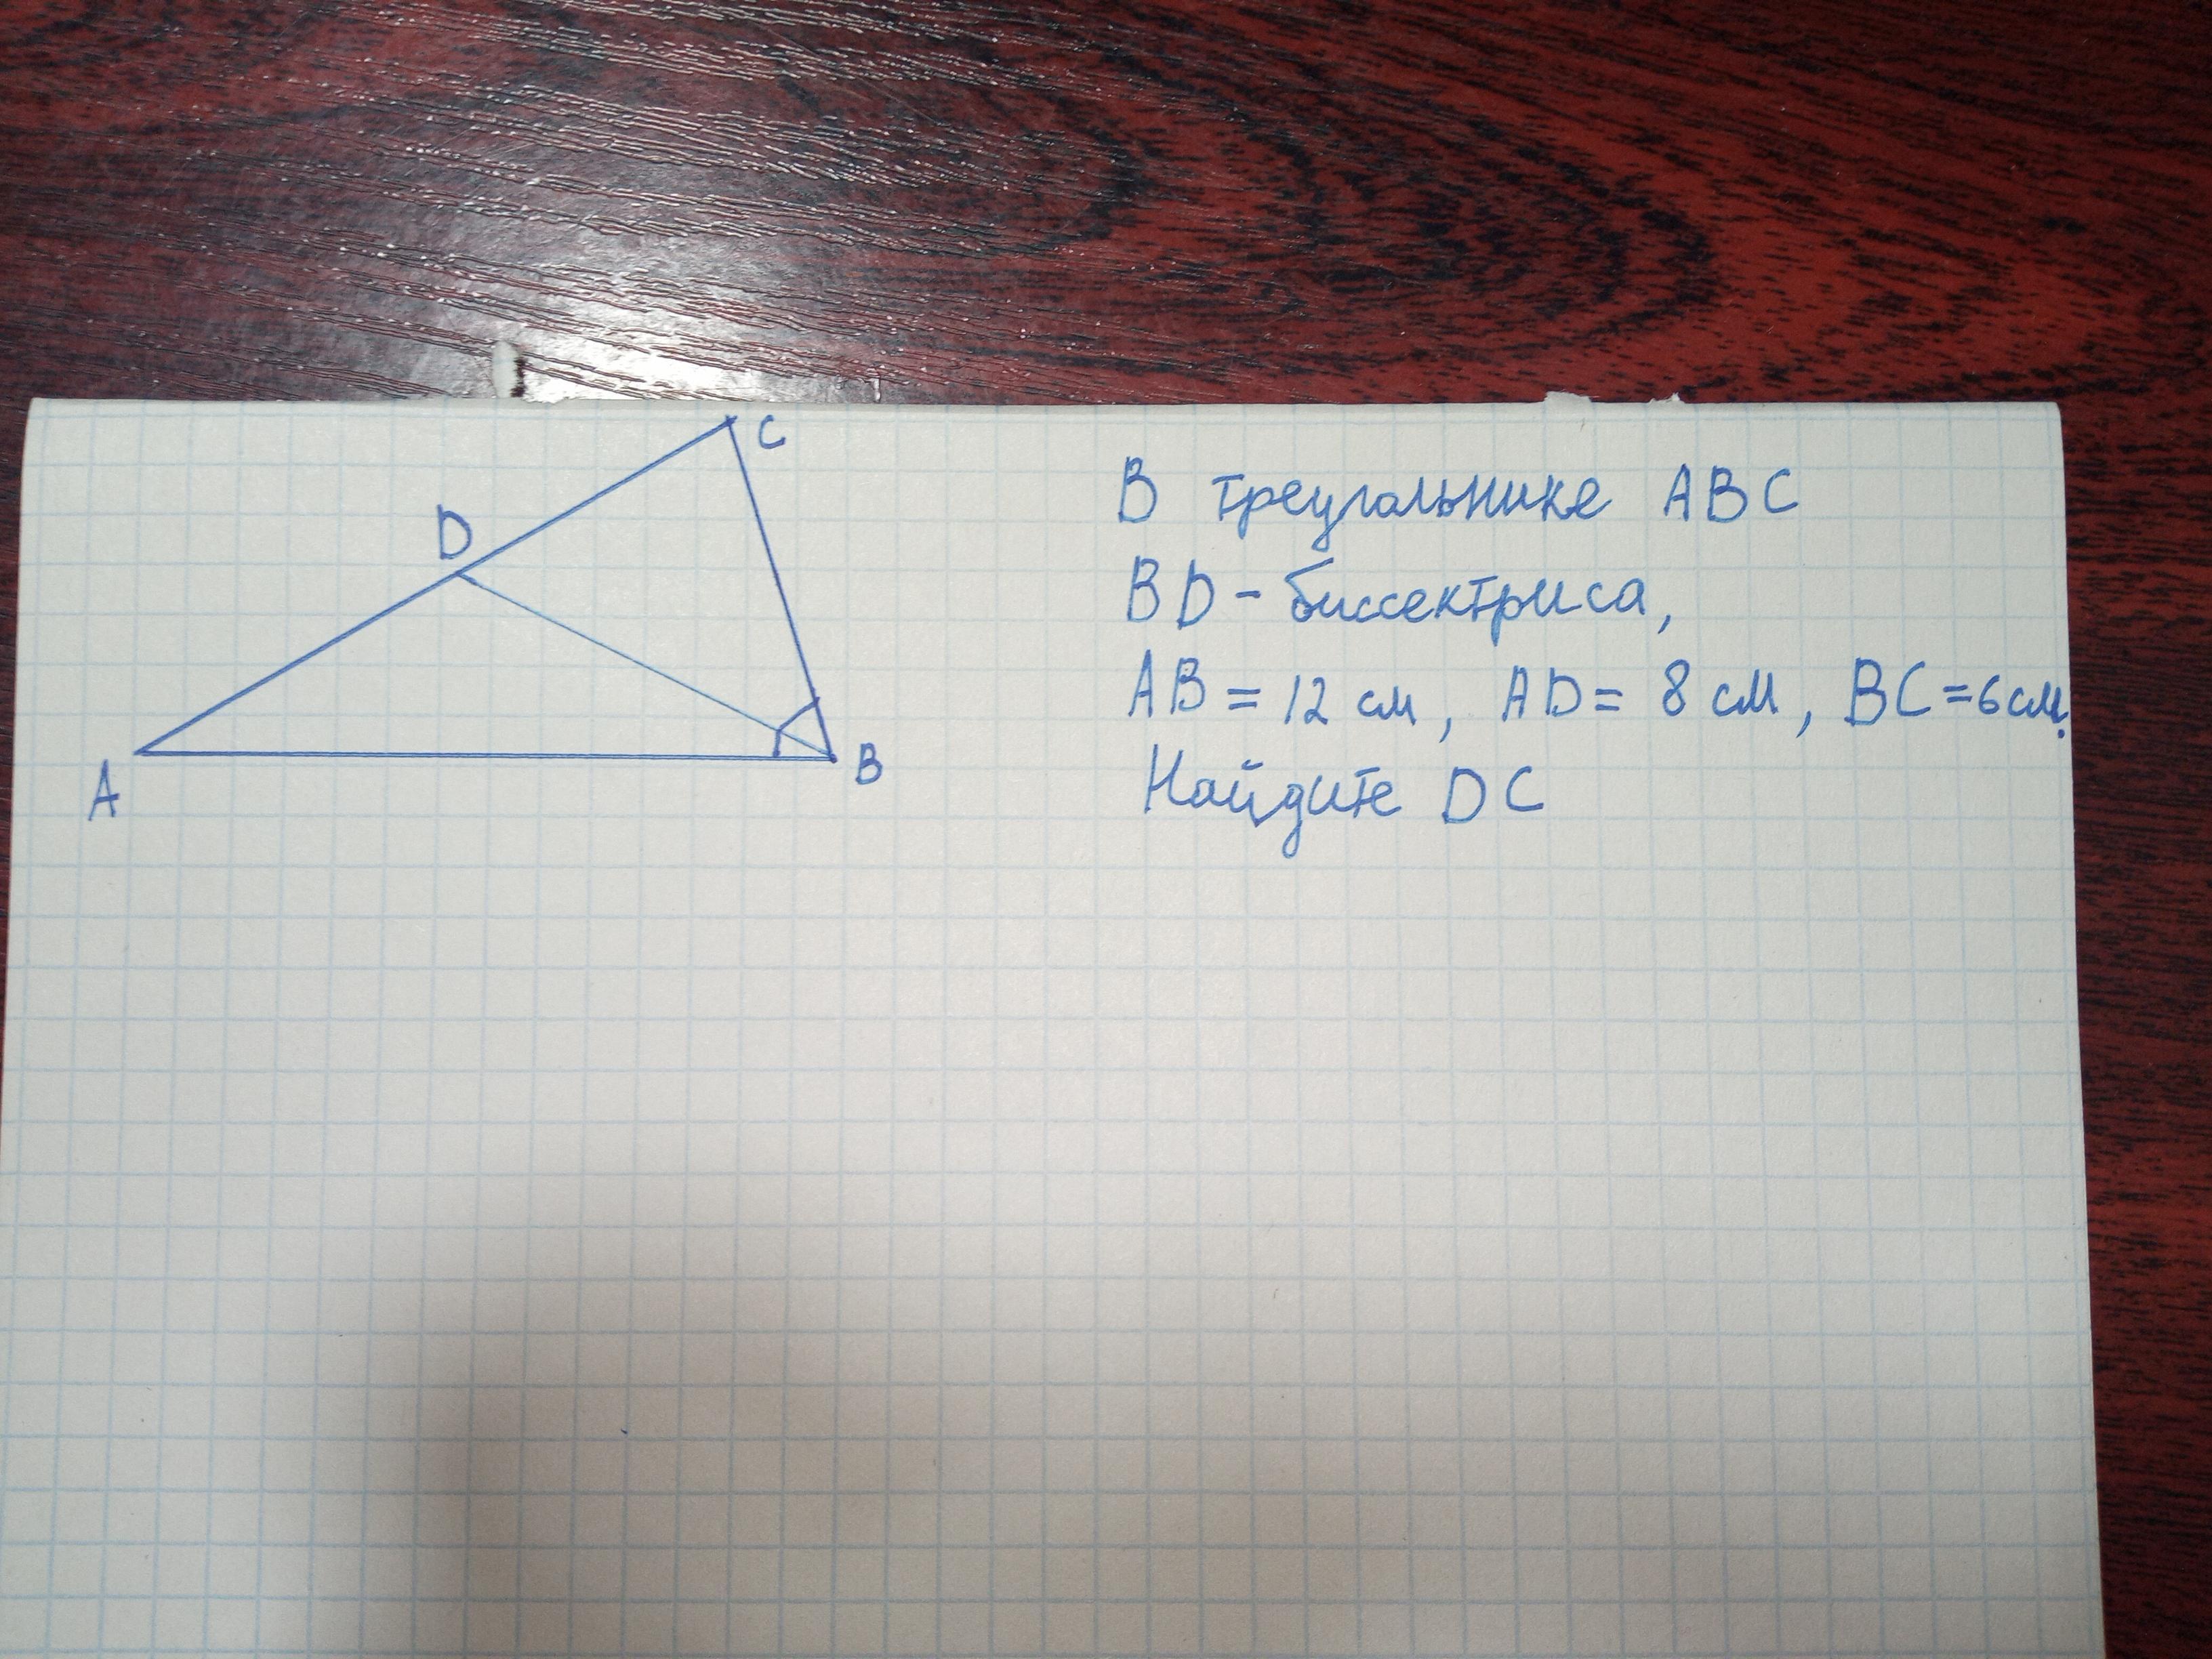 C
D
A
B
В треугольнике ABC
BD - биссектриса,
AB = 12 см, AD = 8 см, BC = 6 см.
Найдите DC